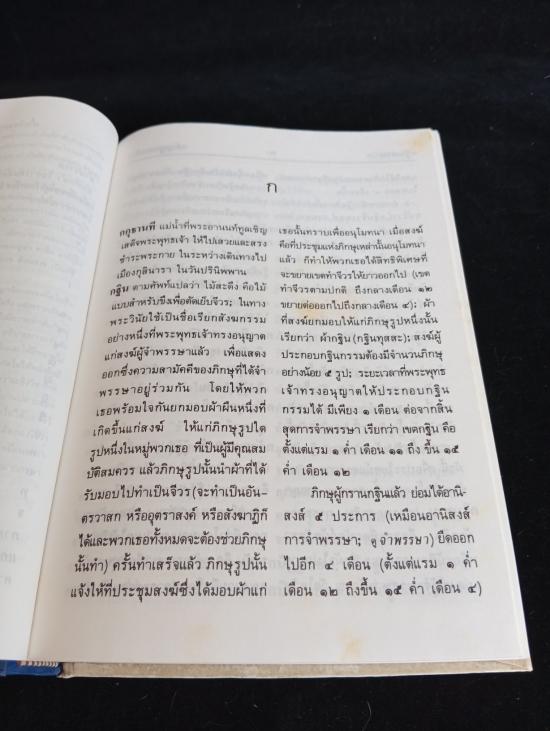 ก
กกุธานที แม่น้ำที่พระอานนท์ทูลเชิญ
เสด็จพระพุทธเจ้า ให้ไปเสวยและสรง
ชำระพระกาย ในระหว่างเดินทางไป
เมืองกุสินารา ในวันปรินิพพาน
กฐิน ตามศัพท์แปลว่า ไม้สะดึง คือไม้
แบบสำหรับขึงเพื่อตัดเย็บจีวร; ในทาง
พระวินัยใช้เป็นชื่อเรียกสังฆกรรม
อย่างหนึ่งที่พระพุทธเจ้าทรงอนุญาต
แก่สงฆ์ผู้จำพรรษาแล้ว เพื่อแสดง
ออกซึ่งความสามัคคีของภิกษุที่ได้จำ
พรรษาอยู่ร่วมกัน โดยให้พวก
เธอพร้อมใจกันยกมอบผ้าผืนหนึ่งที่
เกิดขึ้นแก่สงฆ์ ให้แก่ภิกษุรูปใด
รูปหนึ่งในหมู่พวกเธอ ที่เป็นผู้มีคุณสม
บัติสมควร แล้วภิกษุรูปนั้นนำผ้าที่ได้
รับมอบไปทำเป็นจีวร (จะทำเป็นอัน-
ตรวาสก หรืออุตราสงค์ หรือสังฆาฏิก็
ได้และพวกเธอทั้งหมดจะต้องช่วยภิกษุ
นั้นทำ) ครั้นทำเสร็จแล้ว ภิกษุรูปนั้น
แจ้งให้ที่ประชุมสงฆ์ซึ่งได้มอบผ้าแก่
เธอนั้นทราบเพื่ออนุโมทนา เมื่อสงฆ์
คือที่ประชุมแห่งภิกษุเหล่านั้นอนุโมทนา
แล้ว ก็ทำให้พวกเธอได้สิทธิพิเศษที่
จะขยายเขตทำจีวรให้ยาวออกไป (เขต
ทำจีวรตามปกติ ถึงกลางเดือน ๑๒
ขยายต่อออกไปถึงกลางเดือน ๔); ผ้า
ที่สงฆ์ยกมอบให้แก่ภิกษุรูปหนึ่งนั้น
เรียกว่า ผ้ากฐิน (กฐินทุสสะ); สงฆ์ผู้
ประกอบกฐินกรรมต้องมีจำนวนภิกษุ
อย่างน้อย ๕ รูป; ระยะเวลาที่พระพุทธ
เจ้าทรงอนุญาตให้ประกอบกฐิน
กรรมได้ มีเพียง ๑ เดือน ต่อจากสิ้น
สุดการจำพรรษา เรียกว่า เขตกฐิน คือ
ตั้งแต่แรม ๑ ค่ำ เดือน ๑๑ ถึง ขึ้น ๑๕
ค่ำ เดือน ๑๒
ภิกษุผู้กรานกฐินแล้ว ย่อมได้อานิ-
สงส์ ๕ ประการ (เหมือนอานิสงส์
การจำพรรษา; ดู จำพรรษา) ยืดออก
ไปอีก ๔ เดือน (ตั้งแต่แรม ๑ ค่ำ
เดือน ๑๒ ถึงขึ้น ๑๕ ค่ำ เดือน ๔)